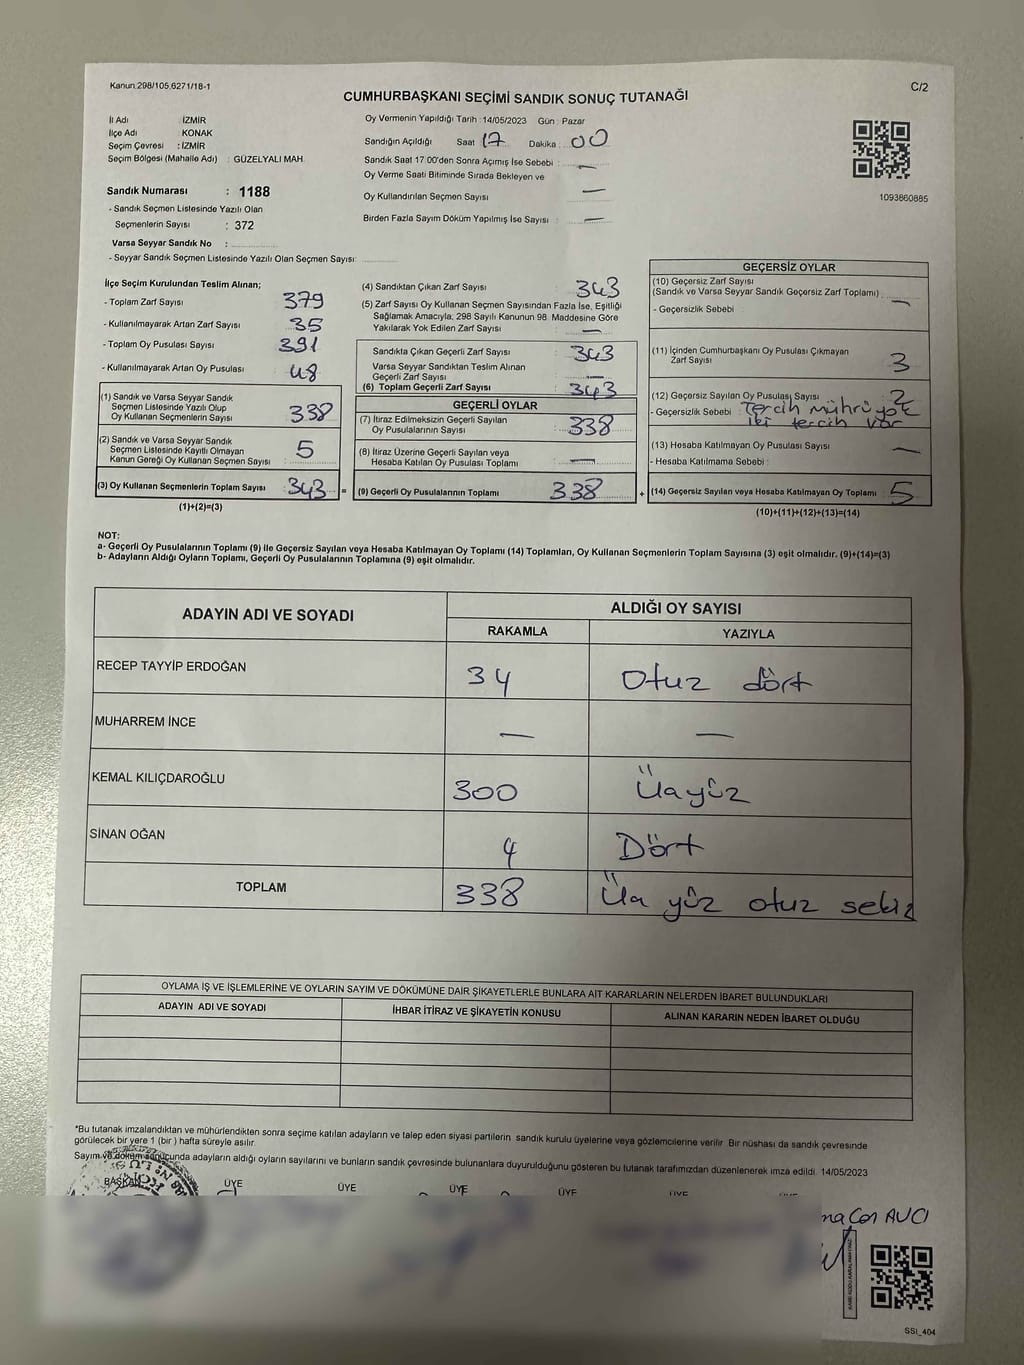 Kanun:298/105,6271/18-1
C/2
CUMHURBAŞKANI SEÇİMİ SANDIK SONUÇ TUTANAĞI
İl Adı : İZMİR
İlçe Adı : KONAK
Seçim Çevresi : İZMİR
Seçim Bölgesi (Mahalle Adı) : GÜZELYALI MAH.
Sandık Numarası : 1188
- Sandık Seçmen Listesinde Yazılı Olan
Seçmenlerin Sayısı : 372
Varsa Seyyar Sandık No :
- Seyyar Sandık Seçmen Listesinde Yazılı Olan Seçmen Sayısı:
Oy Vermenin Yapıldığı Tarih : 14/05/2023 Gün : Pazar
Sandığın Açıldığı Saat 17 Dakika 00
Sandık Saat 17:00'den Sonra Açımış İse Sebebi : —
Oy Verme Saati Bitiminde Sırada Bekleyen ve
Oy Kullandırılan Seçmen Sayısı —
Birden Fazla Sayım Döküm Yapılmış İse Sayısı : —
1093860885
İlçe Seçim Kurulundan Teslim Alınan;
- Toplam Zarf Sayısı 379
- Kullanılmayarak Artan Zarf Sayısı 35
- Toplam Oy Pusulası Sayısı 391
- Kullanılmayarak Artan Oy Pusulası 48
(1) Sandık ve Varsa Seyyar Sandık
Seçmen Listesinde Yazılı Olup
Oy Kullanan Seçmenlerin Sayısı 338
(2) Sandık ve Varsa Seyyar Sandık
Seçmen Listesinde Kayıtlı Olmayan
Kanun Gereği Oy Kullanan Seçmen Sayısı 5
(3) Oy Kullanan Seçmenlerin Toplam Sayısı 343 =
(1)+(2)=(3)
(4) Sandıktan Çıkan Zarf Sayısı 343
(5) Zarf Sayısı Oy Kullanan Seçmen Sayısından Fazla İse, Eşitliği
Sağlamak Amacıyla, 298 Sayılı Kanunun 98. Maddesine Göre
Yakılarak Yok Edilen Zarf Sayısı —
Sandıkta Çıkan Geçerli Zarf Sayısı 343
Varsa Seyyar Sandıktan Teslim Alınan
Geçerli Zarf Sayısı —
(6) Toplam Geçerli Zarf Sayısı 343
GEÇERLİ OYLAR
(7) İtiraz Edilmeksizin Geçerli Sayılan
Oy Pusulalarının Sayısı 338
(8) İtiraz Üzerine Geçerli Sayılan veya
Hesaba Katılan Oy Pusulası Toplamı —
(9) Geçerli Oy Pusulalarının Toplamı 338 +
GEÇERSİZ OYLAR
(10) Geçersiz Zarf Sayısı
(Sandık ve Varsa Seyyar Sandık Geçersiz Zarf Toplamı) —
- Geçersizlik Sebebi
(11) İçinden Cumhurbaşkanı Oy Pusulası Çıkmayan
Zarf Sayısı 3
(12) Geçersiz Sayılan Oy Pusulası Sayısı 2
- Geçersizlik Sebebi : Tercih mührü yok
iki tercih var
(13) Hesaba Katılmayan Oy Pusulası Sayısı —
- Hesaba Katılmama Sebebi :
(14) Geçersiz Sayılan veya Hesaba Katılmayan Oy Toplamı 5
(10)+(11)+(12)+(13)=(14)
NOT:
a- Geçerli Oy Pusulalarının Toplamı (9) ile Geçersiz Sayılan veya Hesaba Katılmayan Oy Toplamı (14) Toplamları, Oy Kullanan Seçmenlerin Toplam Sayısına (3) eşit olmalıdır. (9)+(14)=(3)
b- Adayların Aldığı Oyların Toplamı, Geçerli Oy Pusulalarının Toplamına (9) eşit olmalıdır.
ADAYIN ADI VE SOYADI
ALDIĞI OY SAYISI
RAKAMLA YAZIYLA
RECEP TAYYİP ERDOĞAN 34 Otuz dört
MUHARREM İNCE — —
KEMAL KILIÇDAROĞLU 300 Üçyüz
SİNAN OĞAN 4 Dört
TOPLAM 338 Üç yüz otuz sekiz
OYLAMA İŞ VE İŞLEMLERİNE VE OYLARIN SAYIM VE DÖKÜMÜNE DAİR ŞİKAYETLERLE BUNLARA AİT KARARLARIN NELERDEN İBARET BULUNDUKLARI
ADAYIN ADI VE SOYADI İHBAR İTİRAZ VE ŞİKAYETİN KONUSU ALINAN KARARIN NEDEN İBARET OLDUĞU
*Bu tutanak imzalandıktan ve mühürlendikten sonra seçime katılan adayların ve talep eden siyasi partilerin sandık kurulu üyelerine veya gözlemcilerine verilir. Bir nüshası da sandık çevresinde
görülecek bir yere 1 (bir) hafta süreyle asılır.
Sayım ve döküm sonucunda adayların aldığı oyların sayılarını ve bunların sandık çevresinde bulunanlara duyurulduğunu gösteren bu tutanak tarafımızdan düzenlenerek imza edildi. 14/05/2023
BAŞKAN ÜYE ÜYE ÜYE ÜYE ÜYE
AVCI
SSI_404